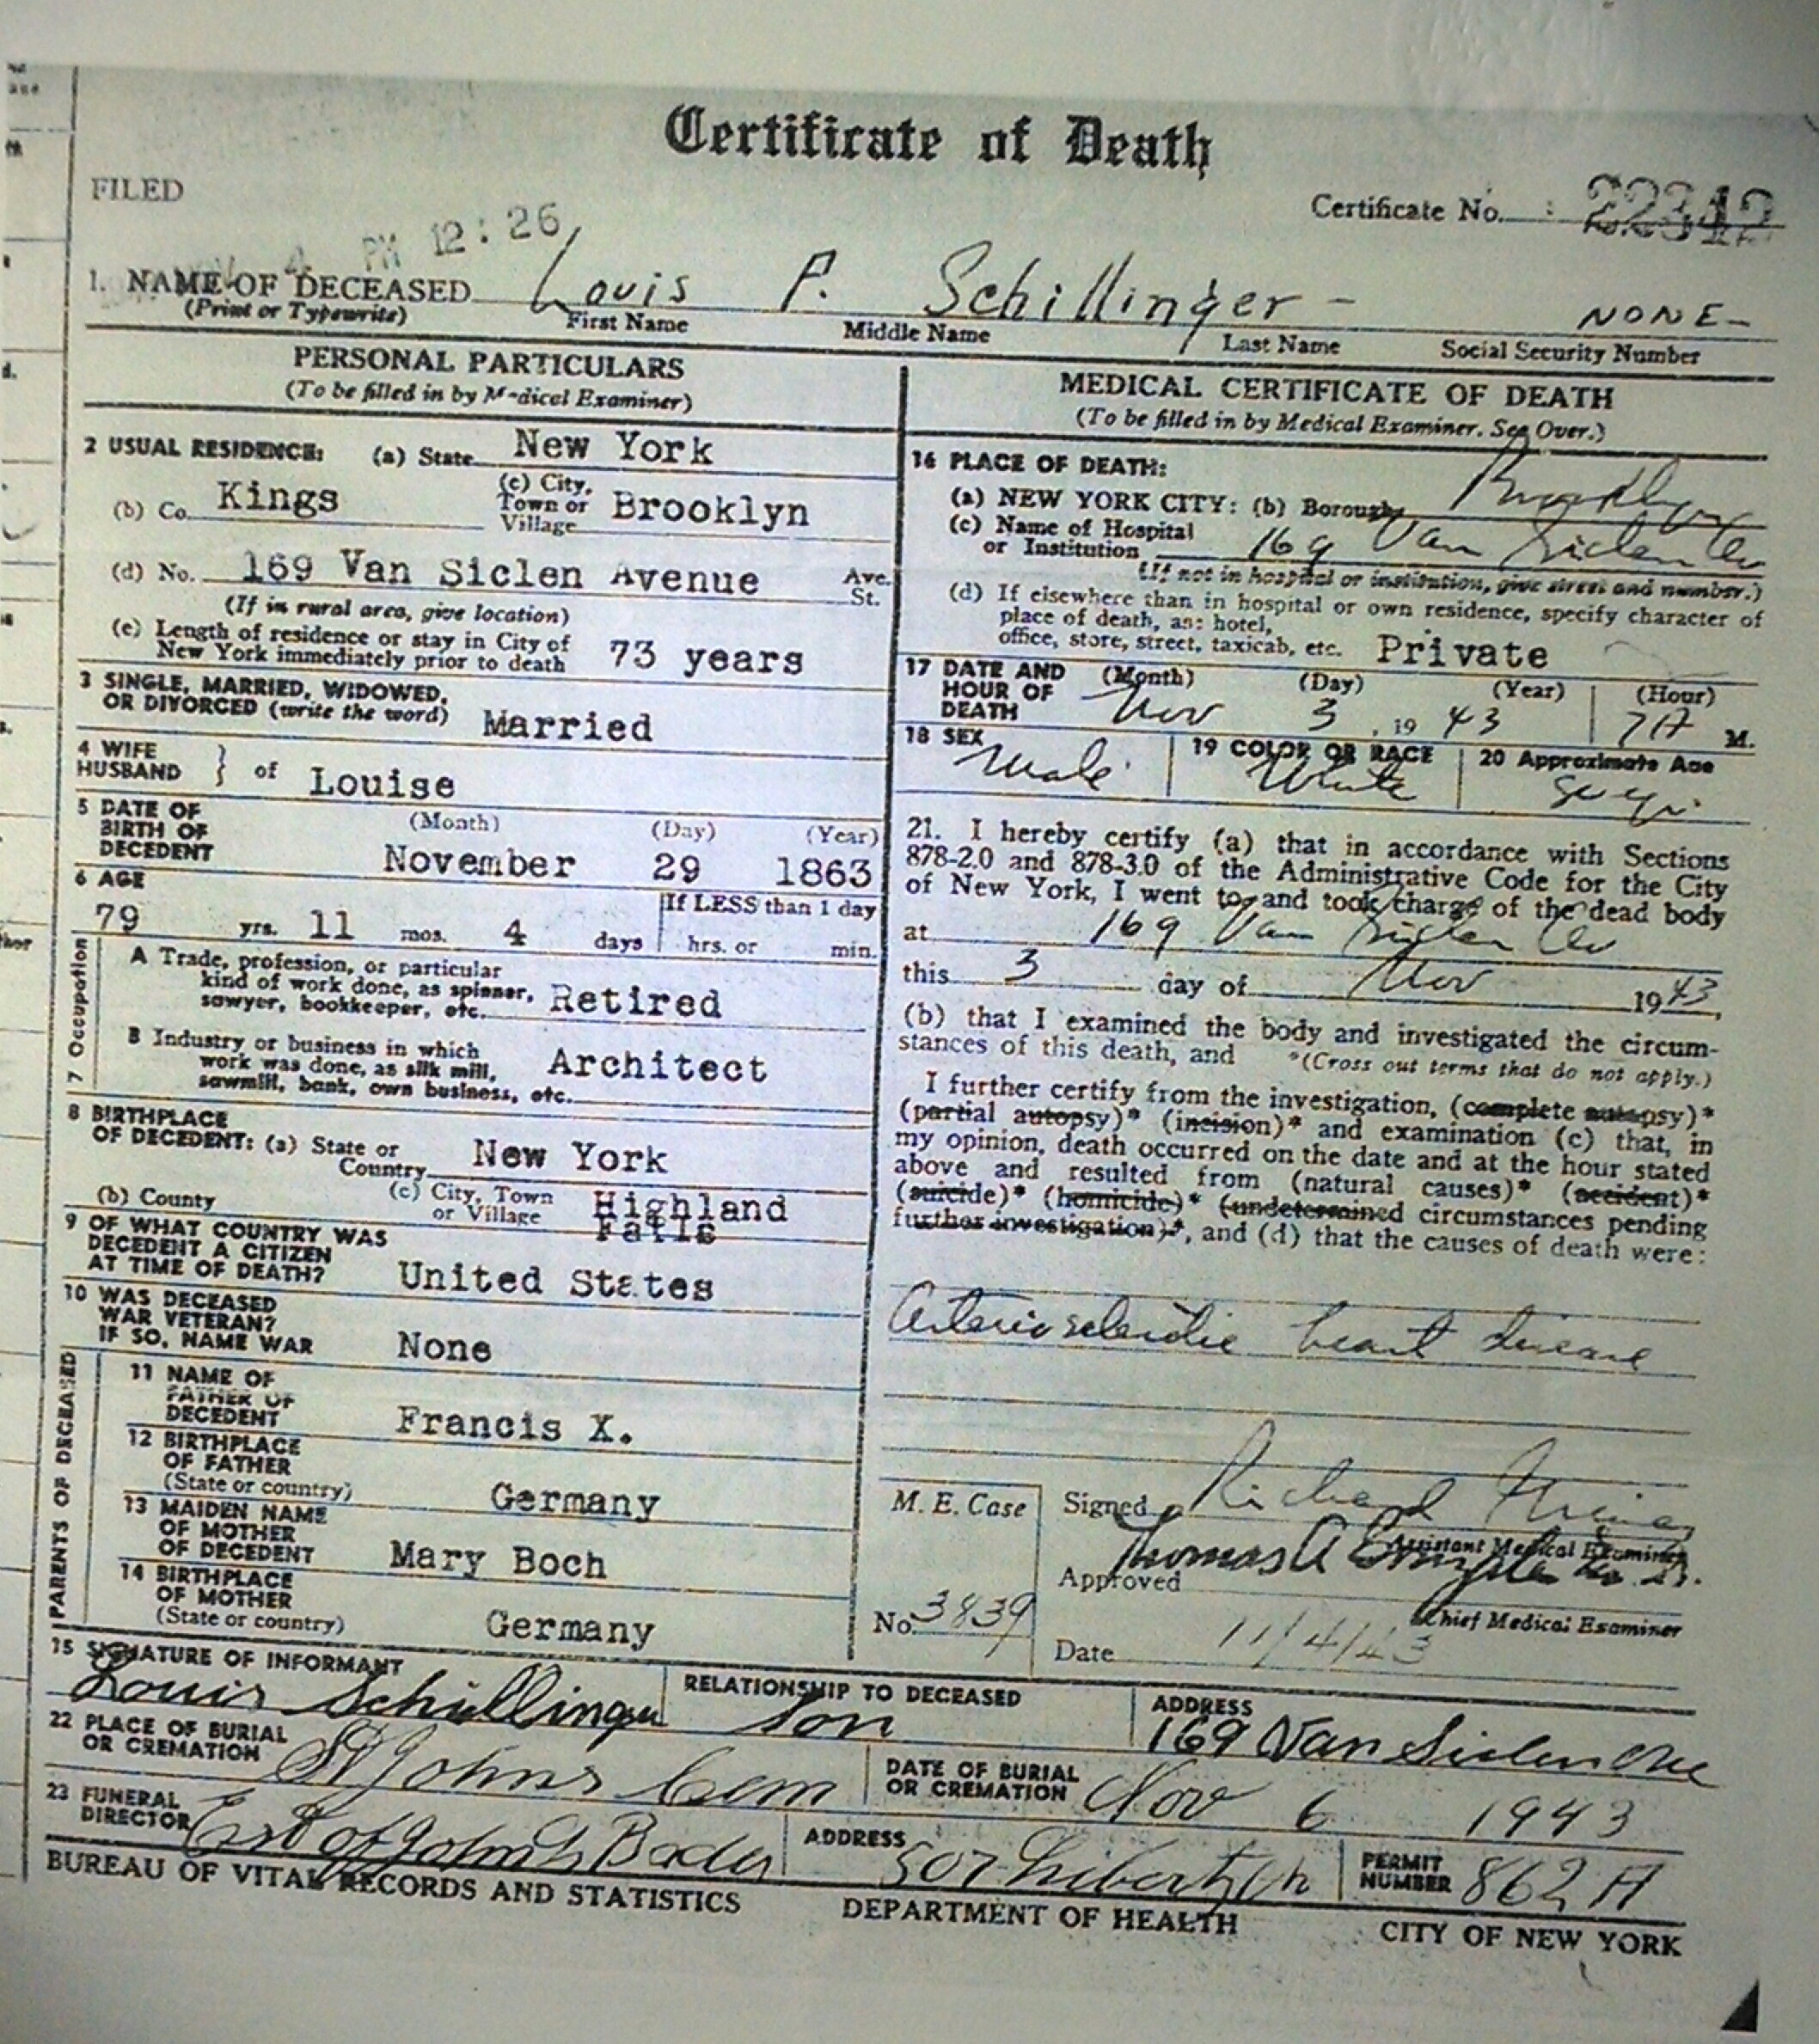 Certificate of Death
FILED
Certificate No. 22342
PM 12:26
1. NAME OF DECEASED Louis P. Schillinger - NONE-
(Print or Typewrite) First Name Middle Name Last Name Social Security Number
PERSONAL PARTICULARS
(To be filled in by Medical Examiner)
2 USUAL RESIDENCE: (a) State New York
(b) Co. Kings (c) City, Town or Village Brooklyn
(d) No. 169 Van Siclen Avenue Ave. St.
(If in rural area, give location)
(e) Length of residence or stay in City of
New York immediately prior to death 73 years
3 SINGLE, MARRIED, WIDOWED,
OR DIVORCED (write the word) Married
4 WIFE
HUSBAND } of Louise
5 DATE OF
BIRTH OF
DECEDENT (Month) (Day) (Year)
November 29 1863
6 AGE
79 yrs. 11 mos. 4 days If LESS than 1 day hrs. or min.
7 Occupation
A Trade, profession, or particular
kind of work done, as spinner,
sawyer, bookkeeper, etc. Retired
B Industry or business in which
work was done, as silk mill,
sawmill, bank, own business, etc. Architect
8 BIRTHPLACE
OF DECEDENT: (a) State or
Country New York
(b) County (c) City, Town
or Village Highland
Falls
9 OF WHAT COUNTRY WAS
DECEDENT A CITIZEN
AT TIME OF DEATH? United States
10 WAS DECEASED
WAR VETERAN?
IF SO, NAME WAR None
PARENTS OF DECEASED
11 NAME OF
FATHER OF
DECEDENT Francis X.
12 BIRTHPLACE
OF FATHER
(State or country) Germany
13 MAIDEN NAME
OF MOTHER
OF DECEDENT Mary Boch
14 BIRTHPLACE
OF MOTHER
(State or country) Germany
MEDICAL CERTIFICATE OF DEATH
(To be filled in by Medical Examiner. See Over.)
16 PLACE OF DEATH:
(a) NEW YORK CITY: (b) Borough Brooklyn
(c) Name of Hospital
or Institution 169 Van Siclen Av
(If not in hospital or institution, give street and number.)
(d) If elsewhere than in hospital or own residence, specify character of
place of death, as: hotel,
office, store, street, taxicab, etc. Private
17 DATE AND
HOUR OF
DEATH (Month) (Day) (Year) (Hour)
Nov 3, 19 43 7 A M.
18 SEX Male 19 COLOR OR RACE White 20 Approximate Age
21. I hereby certify (a) that in accordance with Sections
878-2.0 and 878-3.0 of the Administrative Code for the City
of New York, I went to, and took charge of the dead body
at 169 Van Siclen Av
this 3 day of Nov 1943,
(b) that I examined the body and investigated the circum-
stances of this death, and *(Cross out terms that do not apply.)
I further certify from the investigation, (complete autopsy)*
(partial autopsy)* (incision)* and examination (c) that, in
my opinion, death occurred on the date and at the hour stated
above and resulted from (natural causes)* (accident)*
(suicide)* (homicide)* (undetermined circumstances pending
further investigation)*, and (d) that the causes of death were:
Arteriosclerotic heart disease
M. E. Case
No. 3839
Signed Richard
Assistant Medical Examiner
Approved Thomas A
Chief Medical Examiner
Date 11/4/43
15 SIGNATURE OF INFORMANT RELATIONSHIP TO DECEASED ADDRESS
Louis Schillinger Son 169 Van Siclen Ave
22 PLACE OF BURIAL
OR CREMATION St Johns Cem DATE OF BURIAL
OR CREMATION Nov 6 1943
23 FUNERAL
DIRECTOR Est of John Bader ADDRESS 507 Liberty Av PERMIT
NUMBER 862 A
BUREAU OF VITAL RECORDS AND STATISTICS DEPARTMENT OF HEALTH CITY OF NEW YORK